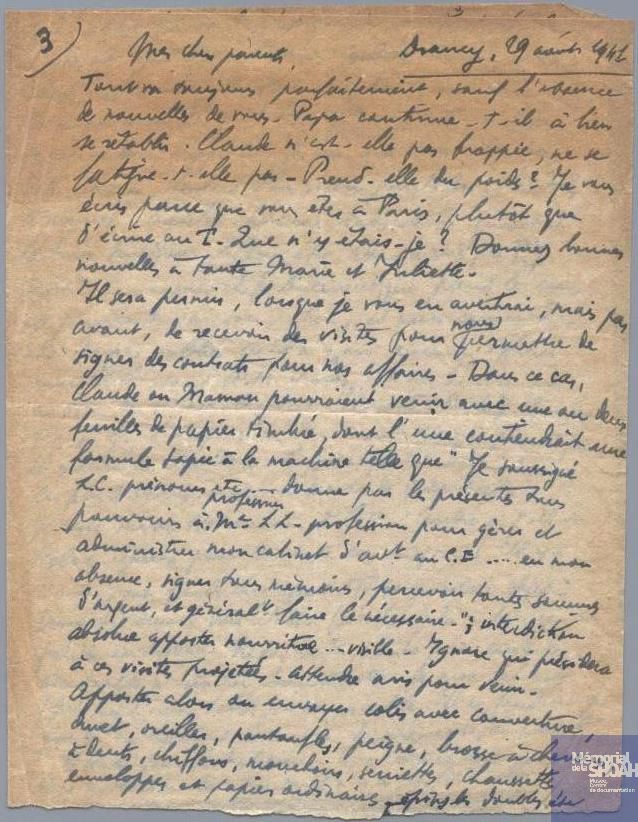 3) Mes chers parents, Drancy, 29 août 1941
Tout va toujours parfaitement, sauf l'absence
de nouvelles de vous. Papa continue-t-il à bien
se rétablir. Claude n'est-elle pas frappée, ne se
fatigue-t-elle pas - Prend-elle du poids? Je vous
écris parce que vous êtes à Paris, plutôt que
d'écrire au T. Que n'y étais-je? Donnez bonnes
nouvelles à tante Marie et Juliette.
Il sera permis, lorsque je vous en avertirai, mais pas
avant, de recevoir des visites pour nous permettre de
signer des contrats pour nos affaires - Dans ce cas,
Claude ou Maman pourraient venir avec une ou deux
feuilles de papier timbré, dont l'une contiendrait une
formule tapée à la machine telle que "Je soussigné
L.C. prénoms etc... profession donne par les présentes tous
pouvoirs à Mr. L.L. profession pour gérer et
administrer mon cabinet d'avt au C.E .... en mon
absence, signer tous mémoires, percevoir toutes sommes
d'argent, et généralt faire le nécessaire -"; interdiction
absolue apporter nourriture ... visible - Ignore qui présidera
à ces visites projetées - attendre avis pour venir -
Apporter alors ou envoyer colis avec couverture,
duvet, oreiller, pantoufles, peigne, brosse à cheveux,
à dents, chiffons, mouchoirs, serviettes, chaussettes
enveloppes et papier ordinaires,
Mémorial
de la SHOAH
Musée,
Centre
de documentation